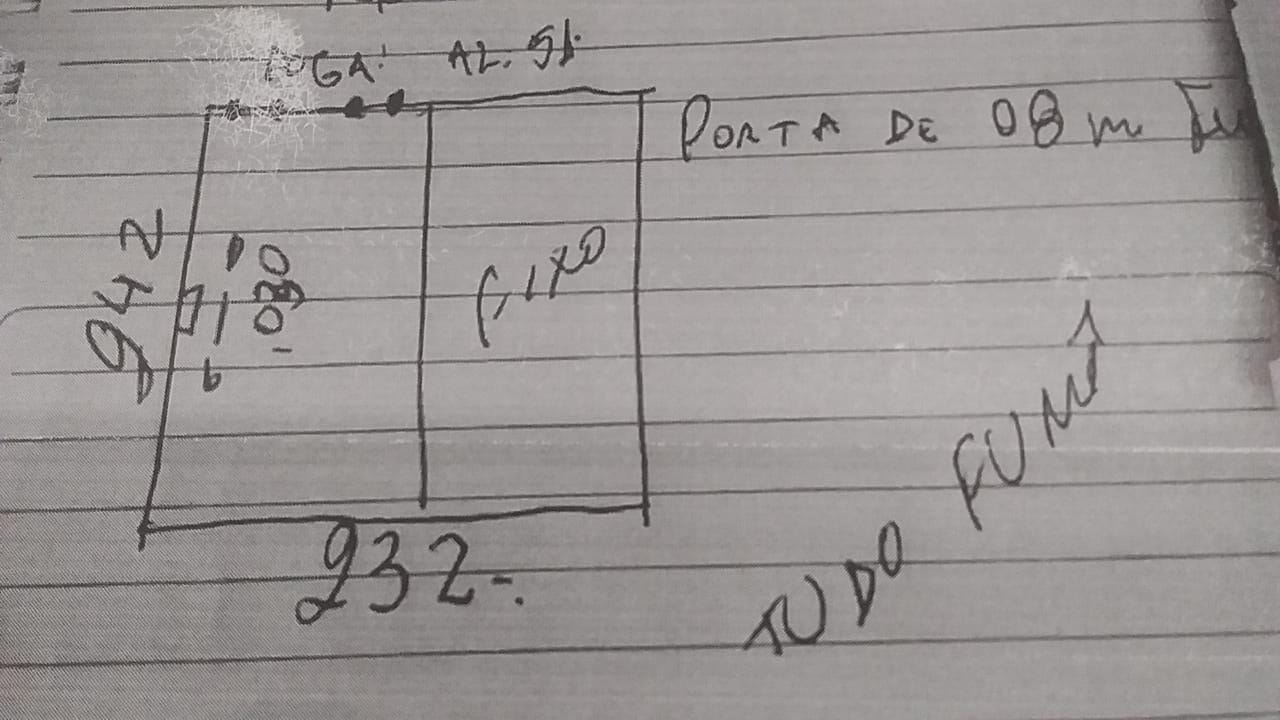 AL. 51.
PORTA DE 08 m
942
080
FIXO
232-.
TUDO FUMÊ